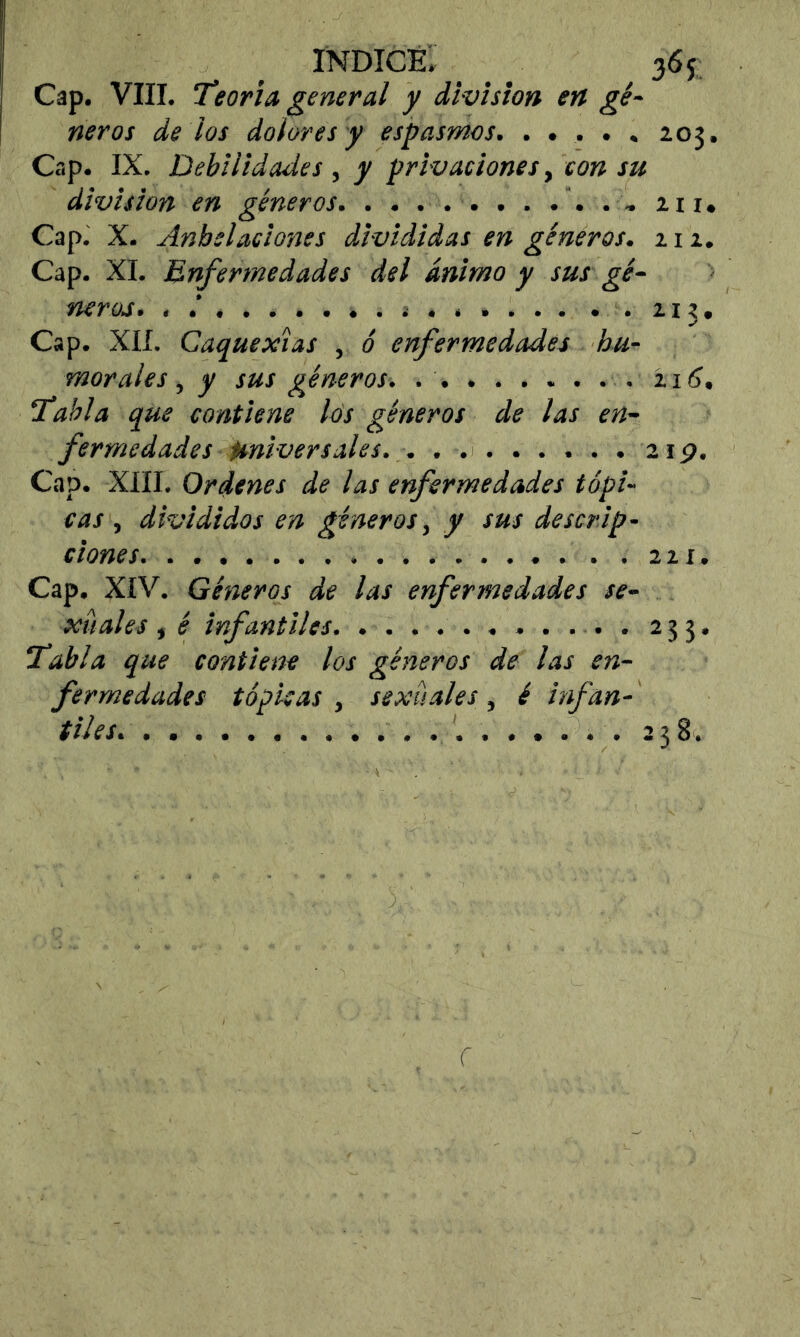 INDICE. 365
Cap. VIII. Teoria general y division en gé-
neros de los dolores y espasmos. . . . . . 203.
Cap. IX. Debilidades , y privaciones, con su
division en géneros. . . . . . . . . . . . . 211.
Cap. X. Anhelaciones divididas en géneros. 212.
Cap. XI. Enfermedades del ánimo y sus gé-
neros. . . . . . . . . . . . . . . . . . . 213.
Cap. XII. Caquexîas , ó enfermedades hu-
morales, y sus géneros. . . . . . . . . . 216.
Tabla que contiene los géneros de las en-
fermedades universales. . . . . . . . . . 219.
Cap. XIII. Ordenes de las enfermedades tópi-
cas , divididos en géneros, y sus descrip-
ciones. . . . . . . . . . . . . . . . . . . 221.
Cap. XIV. Géneros de las enfermedades se-
xûales , é infantiles. . . . . . . . . . . . 233.
Tabla que contiene los géneros de las en-
fermedades tópicas , sexûales, é infan-
tiles. . . . . . . . . . . . . . . . . . . . 238.